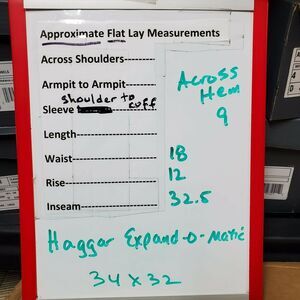 Approximate Flat Lay Measurements
Across Shoulders----------
Armpit to Armpit-----------
shoulder to cuff
Sleeve
Length---------------------
Waist---------------------- 18
Rise------------------------ 12
Inseam-------------------- 32.5
Across
Hem
9
Haggar Expand-O-Matic
34 x 32